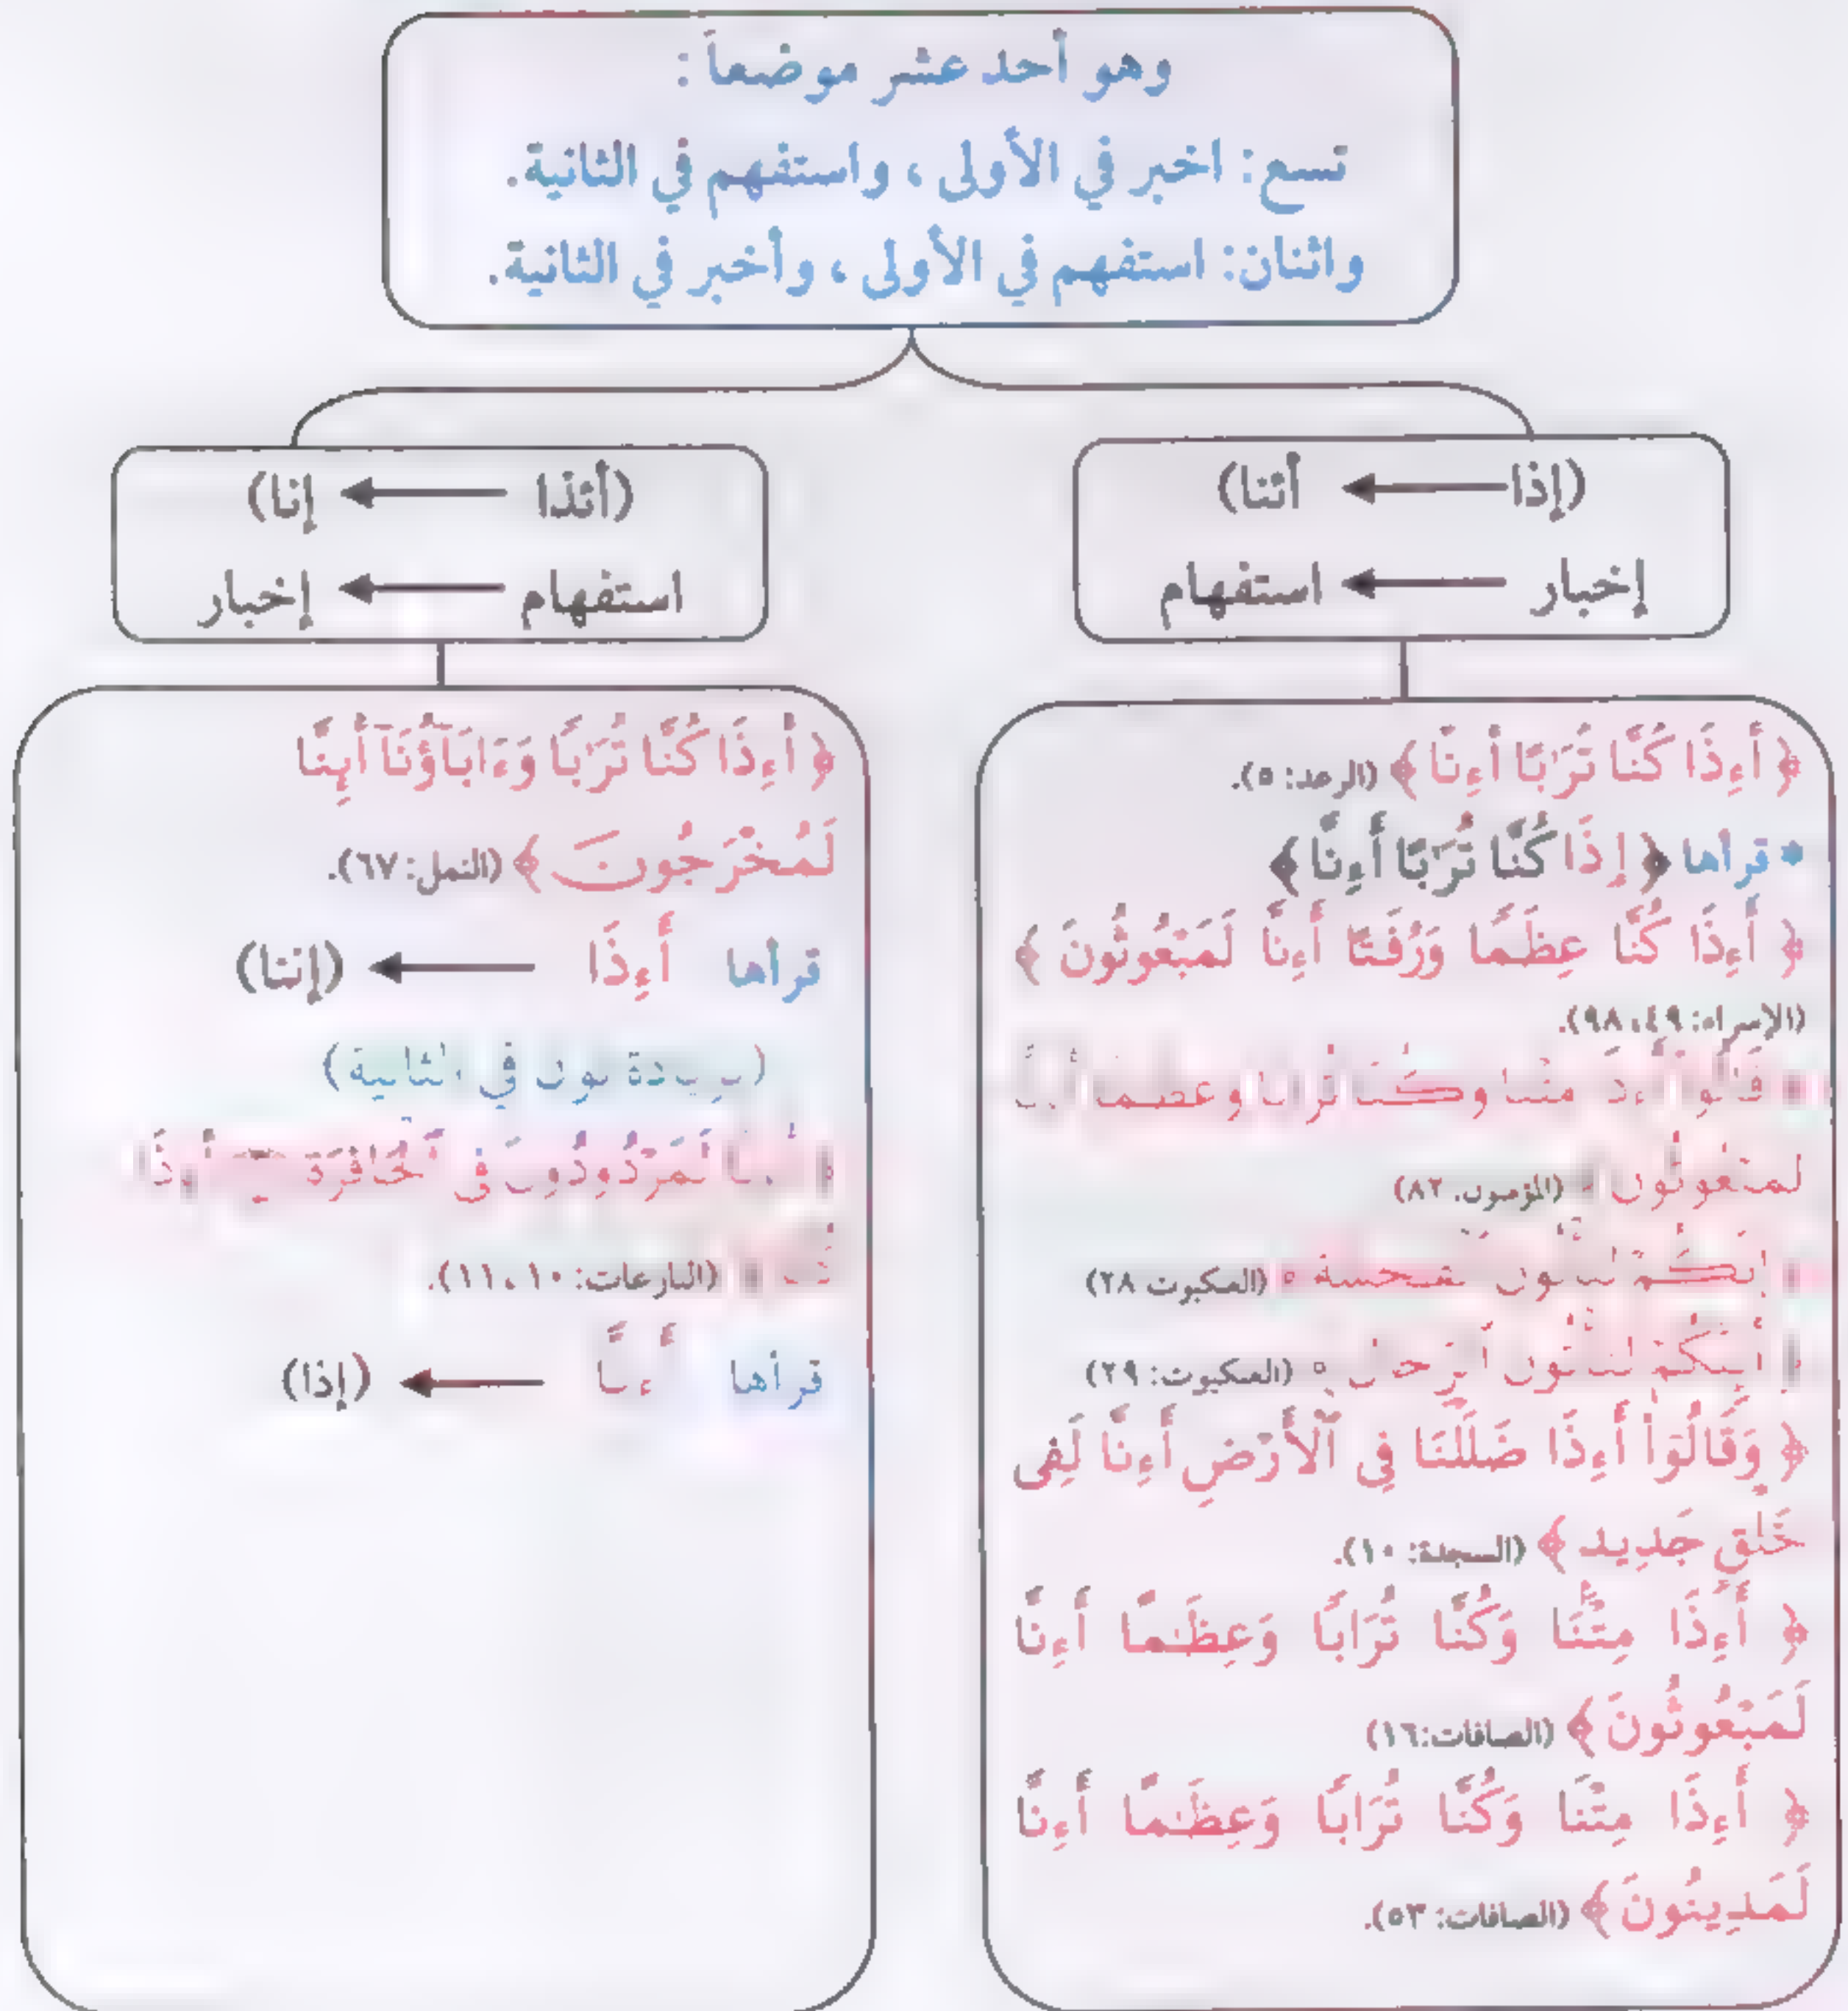 وهو أحد عشر موضعاً :
تسع: اخبر في الأولى ، واستفهم في الثانية.
واثنان: استفهم في الأولى ، وأخبر في الثانية.
(إذا ← أئنا)
إخبار ← استفهام
﴿ أَءِذَا كُنَّا تُرَٰبًا أَءِنَّا ﴾ (الرعد: ٥).
* قرأها ﴿ إِذَا كُنَّا تُرَٰبًا أَءِنَّا ﴾
﴿ أَءِذَا كُنَّا عِظَـٰمًا وَرُفَـٰتًا أَءِنَّا لَمَبْعُوثُونَ ﴾
(الإسراء: ٤٩، ٩٨).
منتنا وكنا ترابا وعظما
لمبعوثون (المؤمنون. ٨٢)
(العنكبوت ٢٨)
أئنكم لتأتون الرجال (العنكبوت: ٢٩)
﴿ وَقَالُوٓاْ أَءِذَا ضَلَلْنَا فِى ٱلْأَرْضِ أَءِنَّا لَفِى
خَلْقٍ جَدِيدٍ ﴾ (السجدة: ١٠).
﴿ أَءِذَا مِتْنَا وَكُنَّا تُرَابًا وَعِظَـٰمًا أَءِنَّا
لَمَبْعُوثُونَ ﴾ (الصافات:١٦)
﴿ أَءِذَا مِتْنَا وَكُنَّا تُرَابًا وَعِظَـٰمًا أَءِنَّا
لَمَدِينُونَ ﴾ (الصافات: ٥٣).
(أئذا ← إنا)
استفهام ← إخبار
﴿ أَءِذَا كُنَّا تُرَٰبًا وَءَابَآؤُنَآ أَئِنَّا
لَمُخْرَجُونَ ﴾ (النمل: ٦٧).
قرأها أَءِذَا ← (إننا)
(بزيادة نون في الثانية)
لَمَرْدُودُونَ فِى ٱلْحَافِرَةِ أَءِذَا
(النازعات: ١٠، ١١).
قرأها ← (إذا)